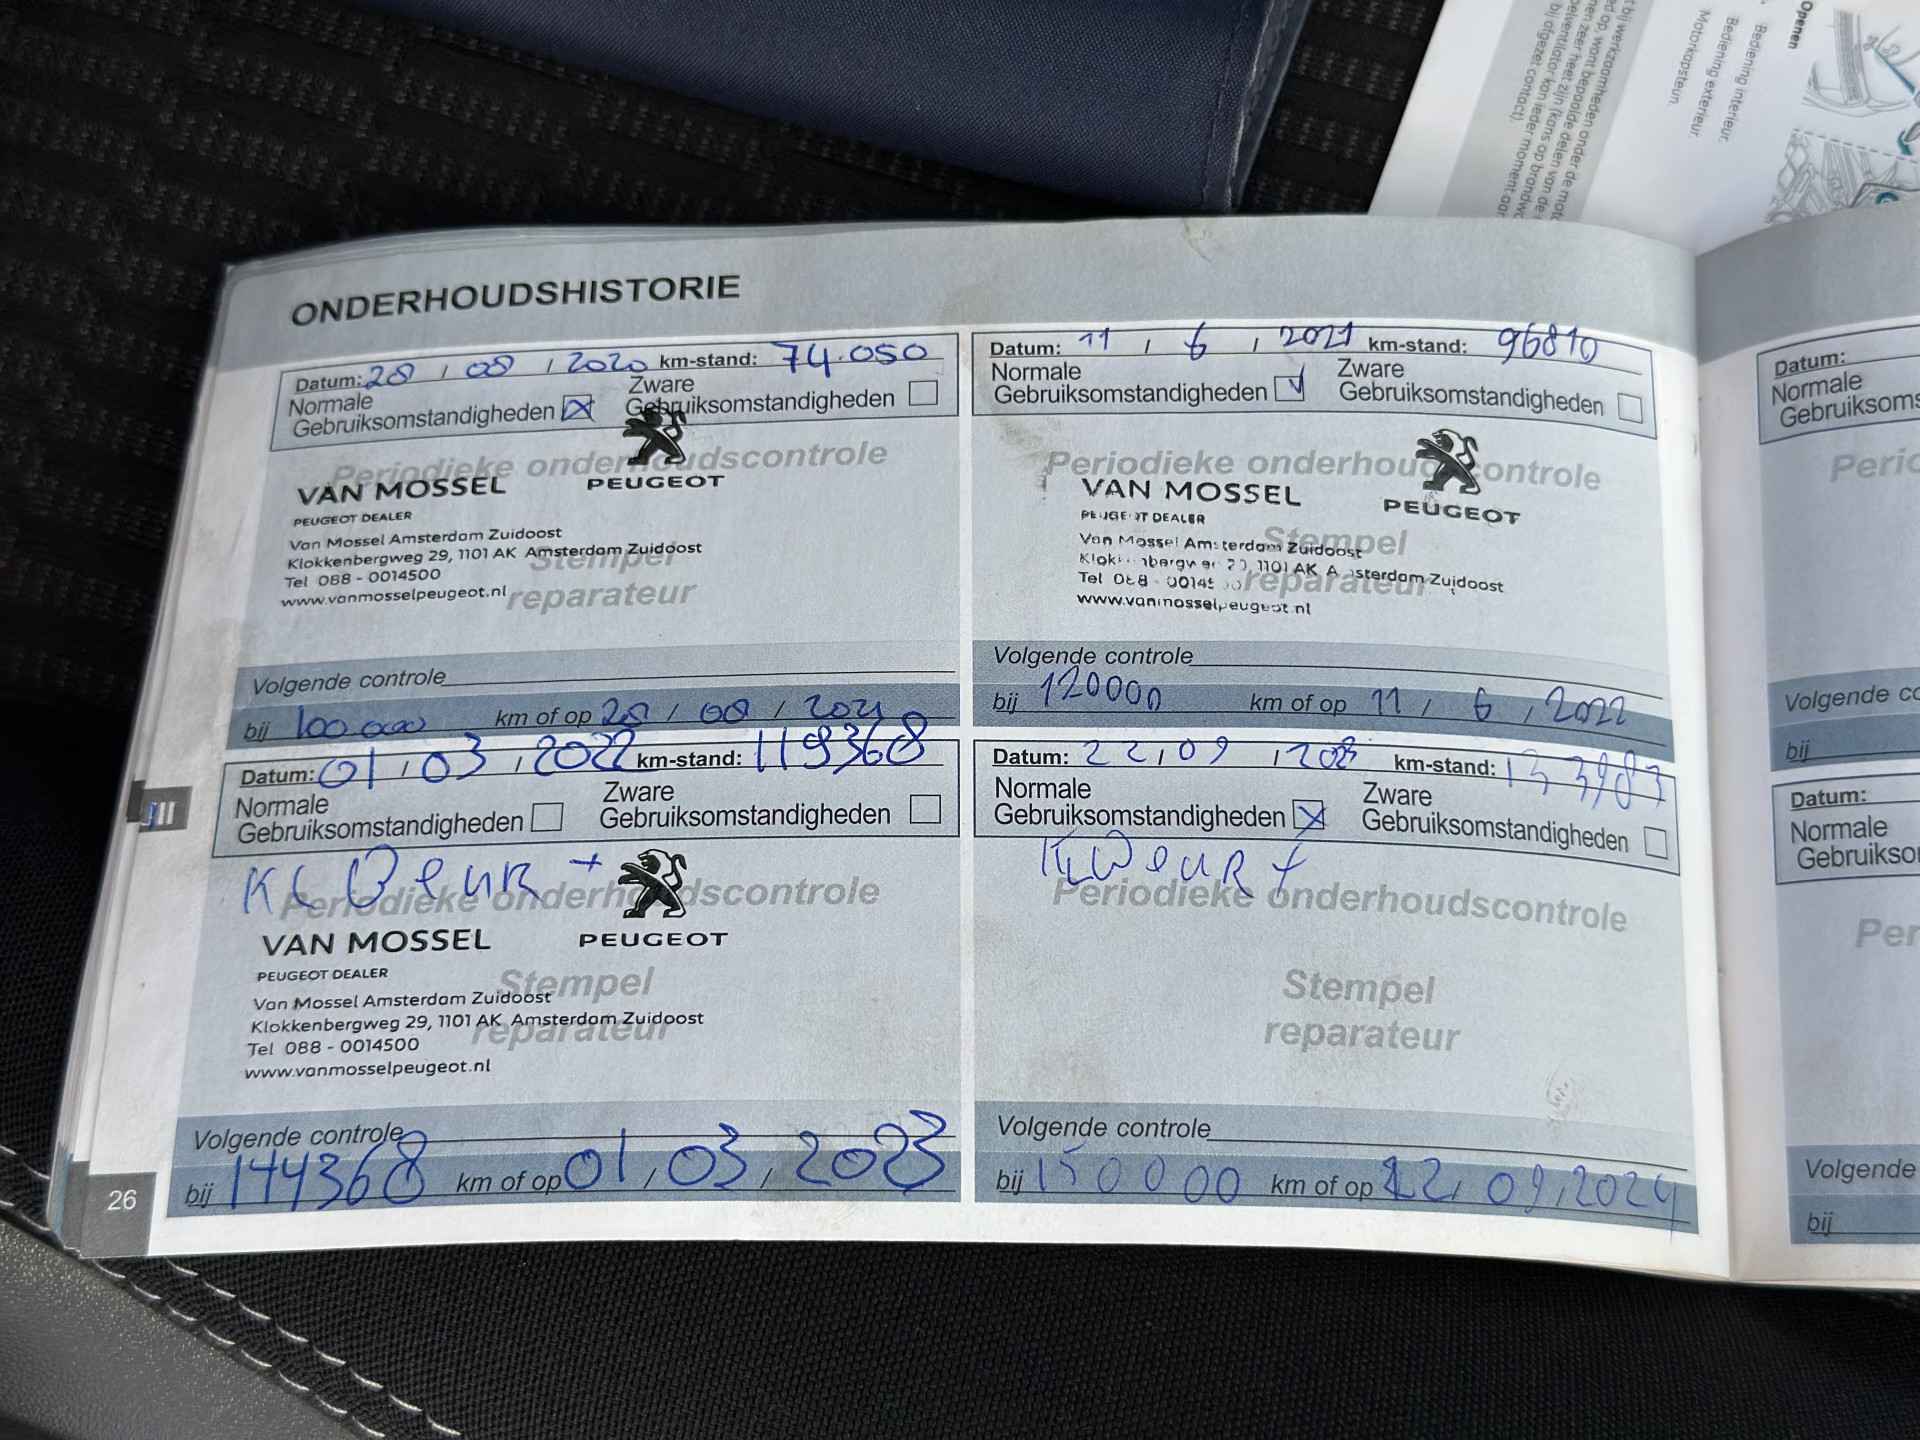 Openen
Bediening interieur.
Bediening exterieur.
Motorkapsteun.
bij werkzaamheden onder de
zeer heet zijn (kans op
ventilator kan ieder moment
bij afgezet contact).
ONDERHOUDSHISTORIE
Datum: 28 / 08 / 2020 km-stand: 74.050
Normale
Gebruiksomstandigheden
Zware
Gebruiksomstandigheden
Periodieke onderhoudscontrole
VAN MOSSEL
PEUGEOT
PEUGEOT DEALER
Van Mossel Amsterdam Zuidoost
Klokkenbergweg 29, 1101 AK Amsterdam Zuidoost
Tel 088 - 0014500
www.vanmosselpeugeot.nl
Stempel
reparateur
Volgende controle
bij 100.000 km of op 28 / 08 / 2021
Datum: 11 / 6 / 2021 km-stand: 96810
Normale
Gebruiksomstandigheden
Zware
Gebruiksomstandigheden
Periodieke onderhoudscontrole
VAN MOSSEL
PEUGEOT
PEUGEOT DEALER
Van Mossel Amsterdam Zuidoost
Klokkenbergweg 29, 1101 AK Amsterdam Zuidoost
Tel 088 - 0014500
www.vanmosselpeugeot.nl
Stempel
reparateur
Volgende controle
bij 120000 km of op 11 / 6 / 2022
Datum: 01 / 03 / 2022 km-stand: 119368
Normale
Gebruiksomstandigheden
Zware
Gebruiksomstandigheden
Periodieke onderhoudscontrole
VAN MOSSEL
PEUGEOT
PEUGEOT DEALER
Van Mossel Amsterdam Zuidoost
Klokkenbergweg 29, 1101 AK Amsterdam Zuidoost
Tel 088 - 0014500
www.vanmosselpeugeot.nl
Stempel
reparateur
Volgende controle
bij 144368 km of op 01 / 03 / 2023
Datum: 22 / 09 / 2023 km-stand: 133983
Normale
Gebruiksomstandigheden
Zware
Gebruiksomstandigheden
Periodieke onderhoudscontrole
Stempel
reparateur
Volgende controle
bij 150000 km of op 22 / 09 / 2024
26
Datum:
Normale
Gebruiksoms
Period
Volgende co
bij
Datum:
Normale
Gebruikso
Per
Volgende
bij